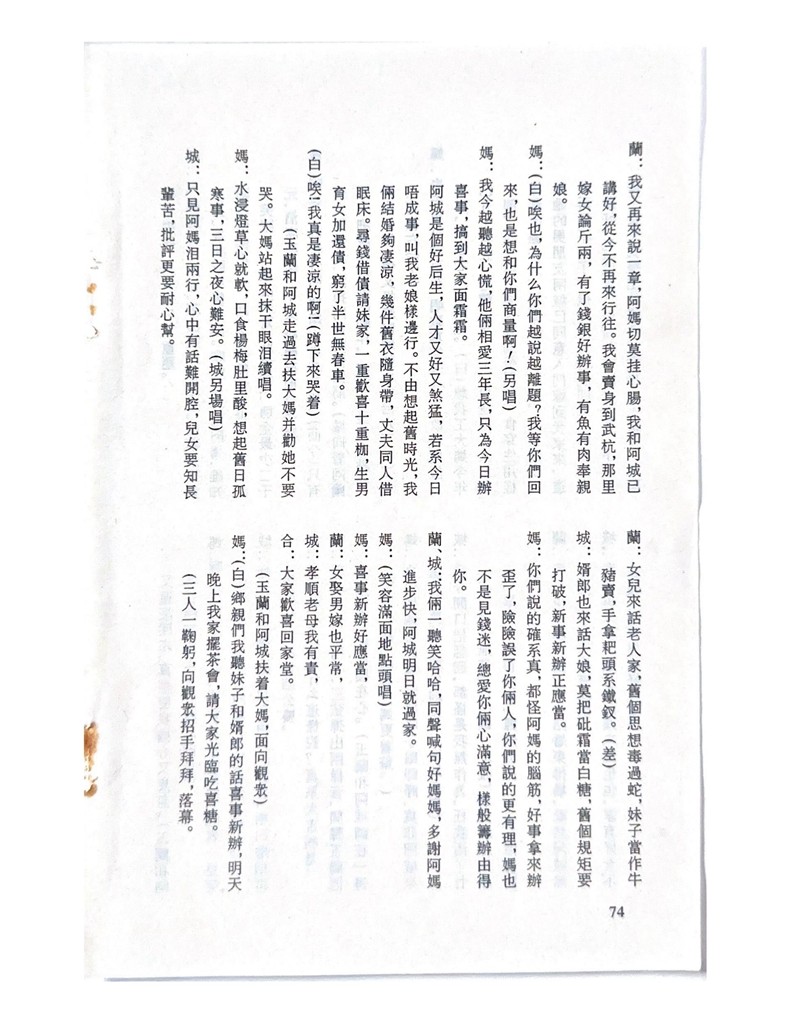 蘭：我又再來說一章，阿媽切莫挂心腸，我和阿城已
講好，從今不再來行往。我會賣身到武杭，那里
嫁女論斤兩，有了錢銀好辦事，有魚有肉奉親
娘。
媽：(白)唉也，為什么你們越說越離題？我等你們回
來，也是想和你們商量啊！(另唱)
媽：我今越聽越心慌，他倆相愛三年長，只為今日辦
喜事，搞到大家面霜霜。
阿城是個好后生，人才又好又煞猛，若系今日
唔成事，叫我老娘樣邊行。不由想起舊時光，我
倆結婚夠凄涼，幾件舊衣隨身帶，丈夫同人借
眠床。尋錢借債請妹家，一重歡喜十重枷，生男
育女加還債，窮了半世無春車。
(白)唉！我真是凄涼的啊！(蹲下來哭着)
(玉蘭和阿城走過去扶大媽并勸她不要
哭。大媽站起來抹干眼泪續唱。
媽：水浸燈草心就軟，口食楊梅肚里酸，想起舊日孤
寒事，三日之夜心難安。(城另場唱)
城：只見阿媽泪兩行，心中有話難開腔，兒女要知長
輩苦，批評更要耐心幫。
蘭：女兒來話老人家，舊個思想毒過蛇，妹子當作牛
豬賣，手拿耙頭系鐵釵。(差)
城：婿郎也來話大娘，莫把砒霜當白糖，舊個規矩要
打破，新事新辦正應當。
媽：你們說的確系真，都怪阿媽的腦筋，好事拿來辦
歪了，險險誤了你倆人，你們說的更有理，媽也
不是見錢迷，總愛你倆心滿意，樣般籌辦由得
你。
蘭、城：我倆一聽笑哈哈，同聲喊句好媽媽，多謝阿媽
進步快，阿城明日就過家。
媽：(笑容滿面地點頭唱)
媽：喜事新辦好應當，
蘭：女娶男嫁也平常，
城：孝順老母我有責，
合：大家歡喜回家堂。
(玉蘭和阿城扶着大媽，面向觀衆)
媽：(白)鄉親們我聽妹子和婿郎的話喜事新辦，明天
晚上我家擺茶會，請大家光臨吃喜糖。
(三人一鞠躬，向觀衆招手拜拜，落幕。
74